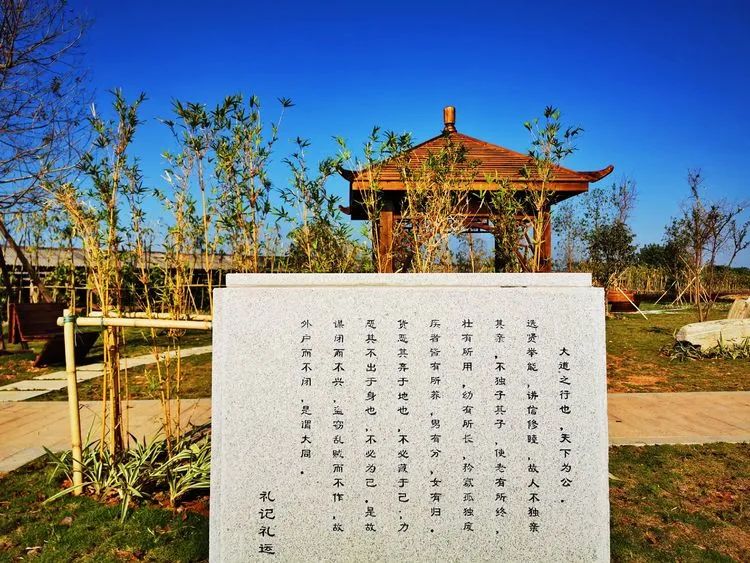 大道之行也，天下为公。
选贤举能，讲信修睦，故人不独亲
其亲，不独子其子，使老有所终，
壮有所用，幼有所长，矜寡孤独废
疾者皆有所养，男有分，女有归。
货恶其弃于地也，不必藏于己；力
恶其不出于身也，不必为己。是故
谋闭而不兴，盗窃乱贼而不作，故
外户而不闭，是谓大同。
礼记礼运